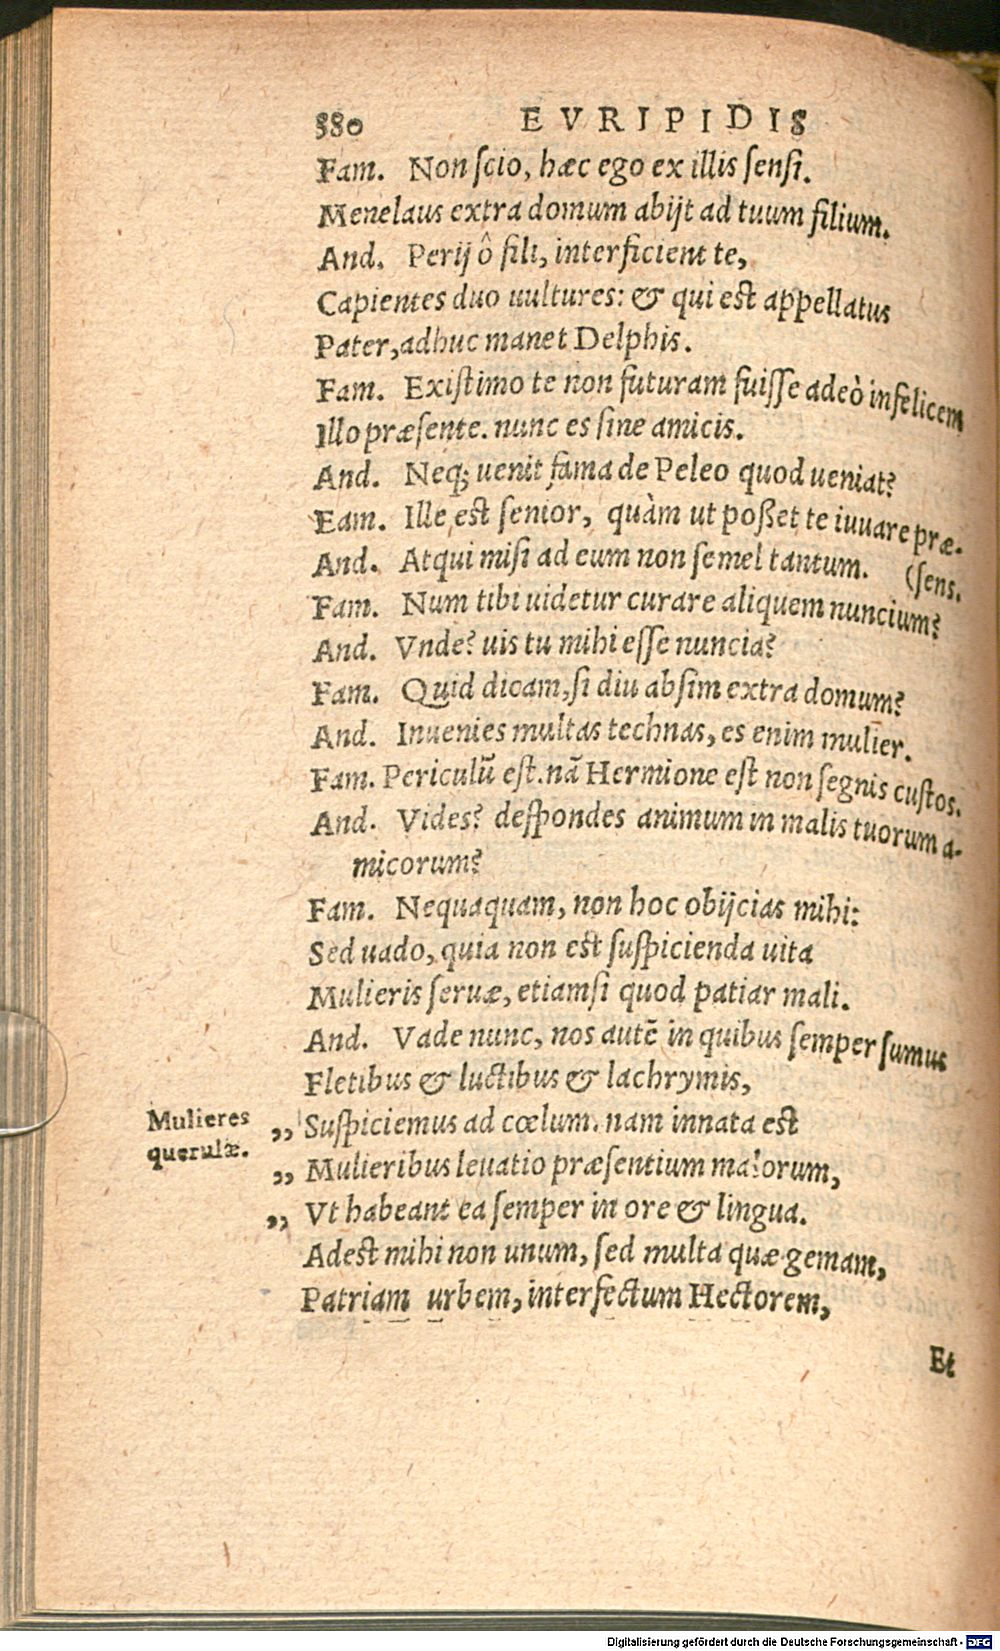 880 EVRIPIDIS
Fam. Non ſcio, hæc ego ex illis ſenſi.
Menelaus extra domum abijt ad tuum filium.
And. Perij ô fili, interficient te,
Capientes duo uultures: & qui eſt appellatus
Pater, adhuc manet Delphis.
Fam. Exiſtimo te non futuram fuiſſe adeò infelicem
Illo præſente. nunc es ſine amicis.
And. Neq; uenit fama de Peleo quod ueniat?
Eam. Ille eſt ſenior, quàm ut poßet te iuuare præ-
And. Atqui miſi ad eum non ſemel tantum. (ſens.
Fam. Num tibi uidetur curare aliquem nuncium?
And. Vnde? uis tu mihi eſſe nuncia?
Fam. Quid dicam, ſi diu abſim extra domum?
And. Inuenies multas technas, es enim mulier.
Fam. Periculũ eſt. nã Hermione eſt non ſegnis cuſtos.
And. Vides? deſpondes animum in malis tuorum a-
micorum?
Fam. Nequaquam, non hoc obijcias mihi:
Sed uado, quia non eſt ſuſpicienda uita
Mulieris ſeruæ, etiamſi quod patiar mali.
And. Vade nunc, nos autẽ in quibus ſemper ſumus
Fletibus & luctibus & lachrymis,
Mulieres querulæ.
„ Suſpiciemus ad cœlum. nam innata eſt
„ Mulieribus leuatio præſentium malorum,
„ Vt habeant ea ſemper in ore & lingua.
Adeſt mihi non unum, ſed multa quæ gemam,
Patriam urbem, interfectum Hectorem,
Et
Digitalisierung gefördert durch die Deutsche Forschungsgemeinschaft - DFG